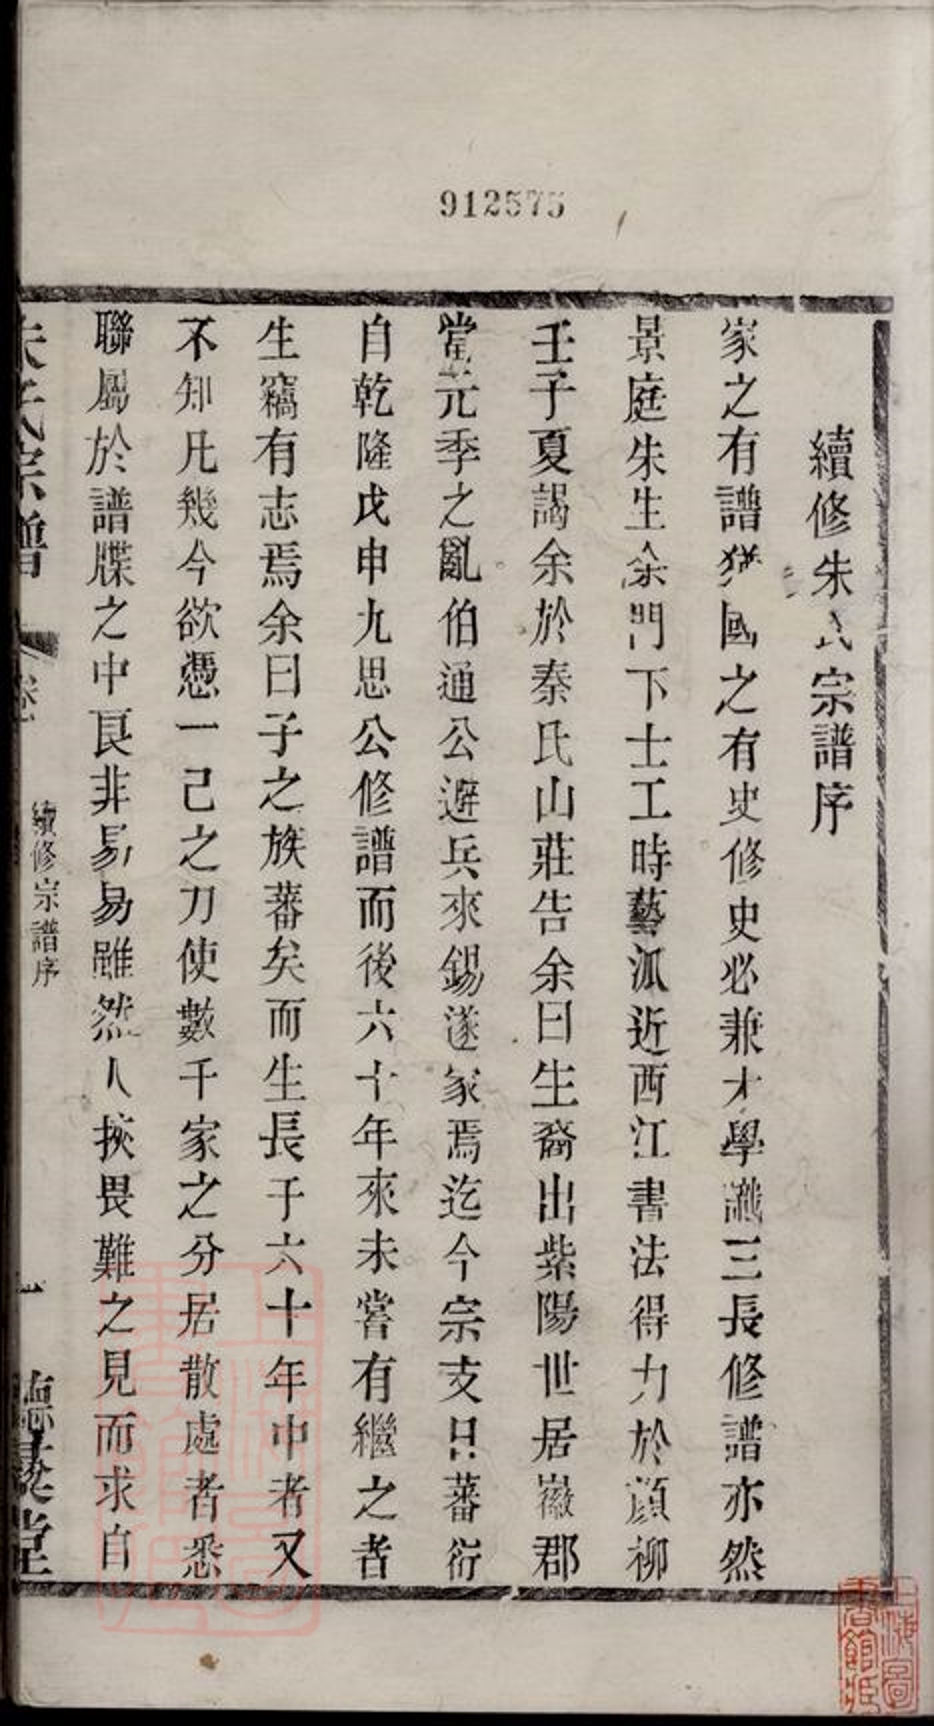 912575
續修朱氏宗譜序
家之有譜猶國之有史修史必兼才學識三長修譜亦然
景庭朱生余門下士工時藝派近西江書法得力於顏柳
壬子夏謁余於秦氏山莊告余曰生裔出紫陽世居徽郡
當元季之亂伯通公避兵來錫遂家焉迄今宗支日蕃衍
自乾隆戊申九思公修譜而後六十年來未嘗有繼之者
生竊有志焉余曰子之族蕃矣而生長于六十年中者又
不知凡幾今欲憑一己之力使數千家之分居散處者悉
聯屬於譜牒之中良非易易雖然人挾畏難之見而求自
朱氏宗譜
卷
續修宗譜序
一
上海圖書館藏